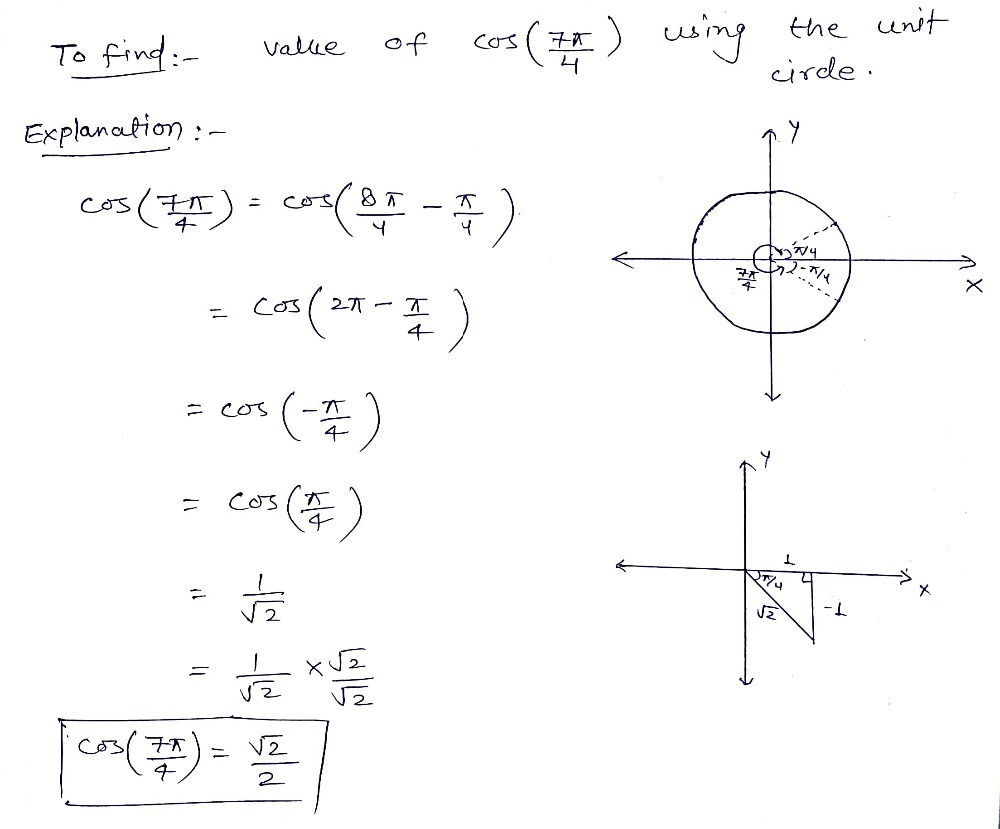 To find:- value of cos(7π/4) using the unit
circle.
Explanation :-
cos(7π/4) = cos(8π/4 - π/4).
= cos(2π - π/4)
= cos(-π/4)
= cos(π/4)
= 1/√2
= 1/√2 × √2/√2
cos(7π/4) = √2/2
Y
π/4
-π/4
7π/4
X
Y
1
π/4
X
√2
-1